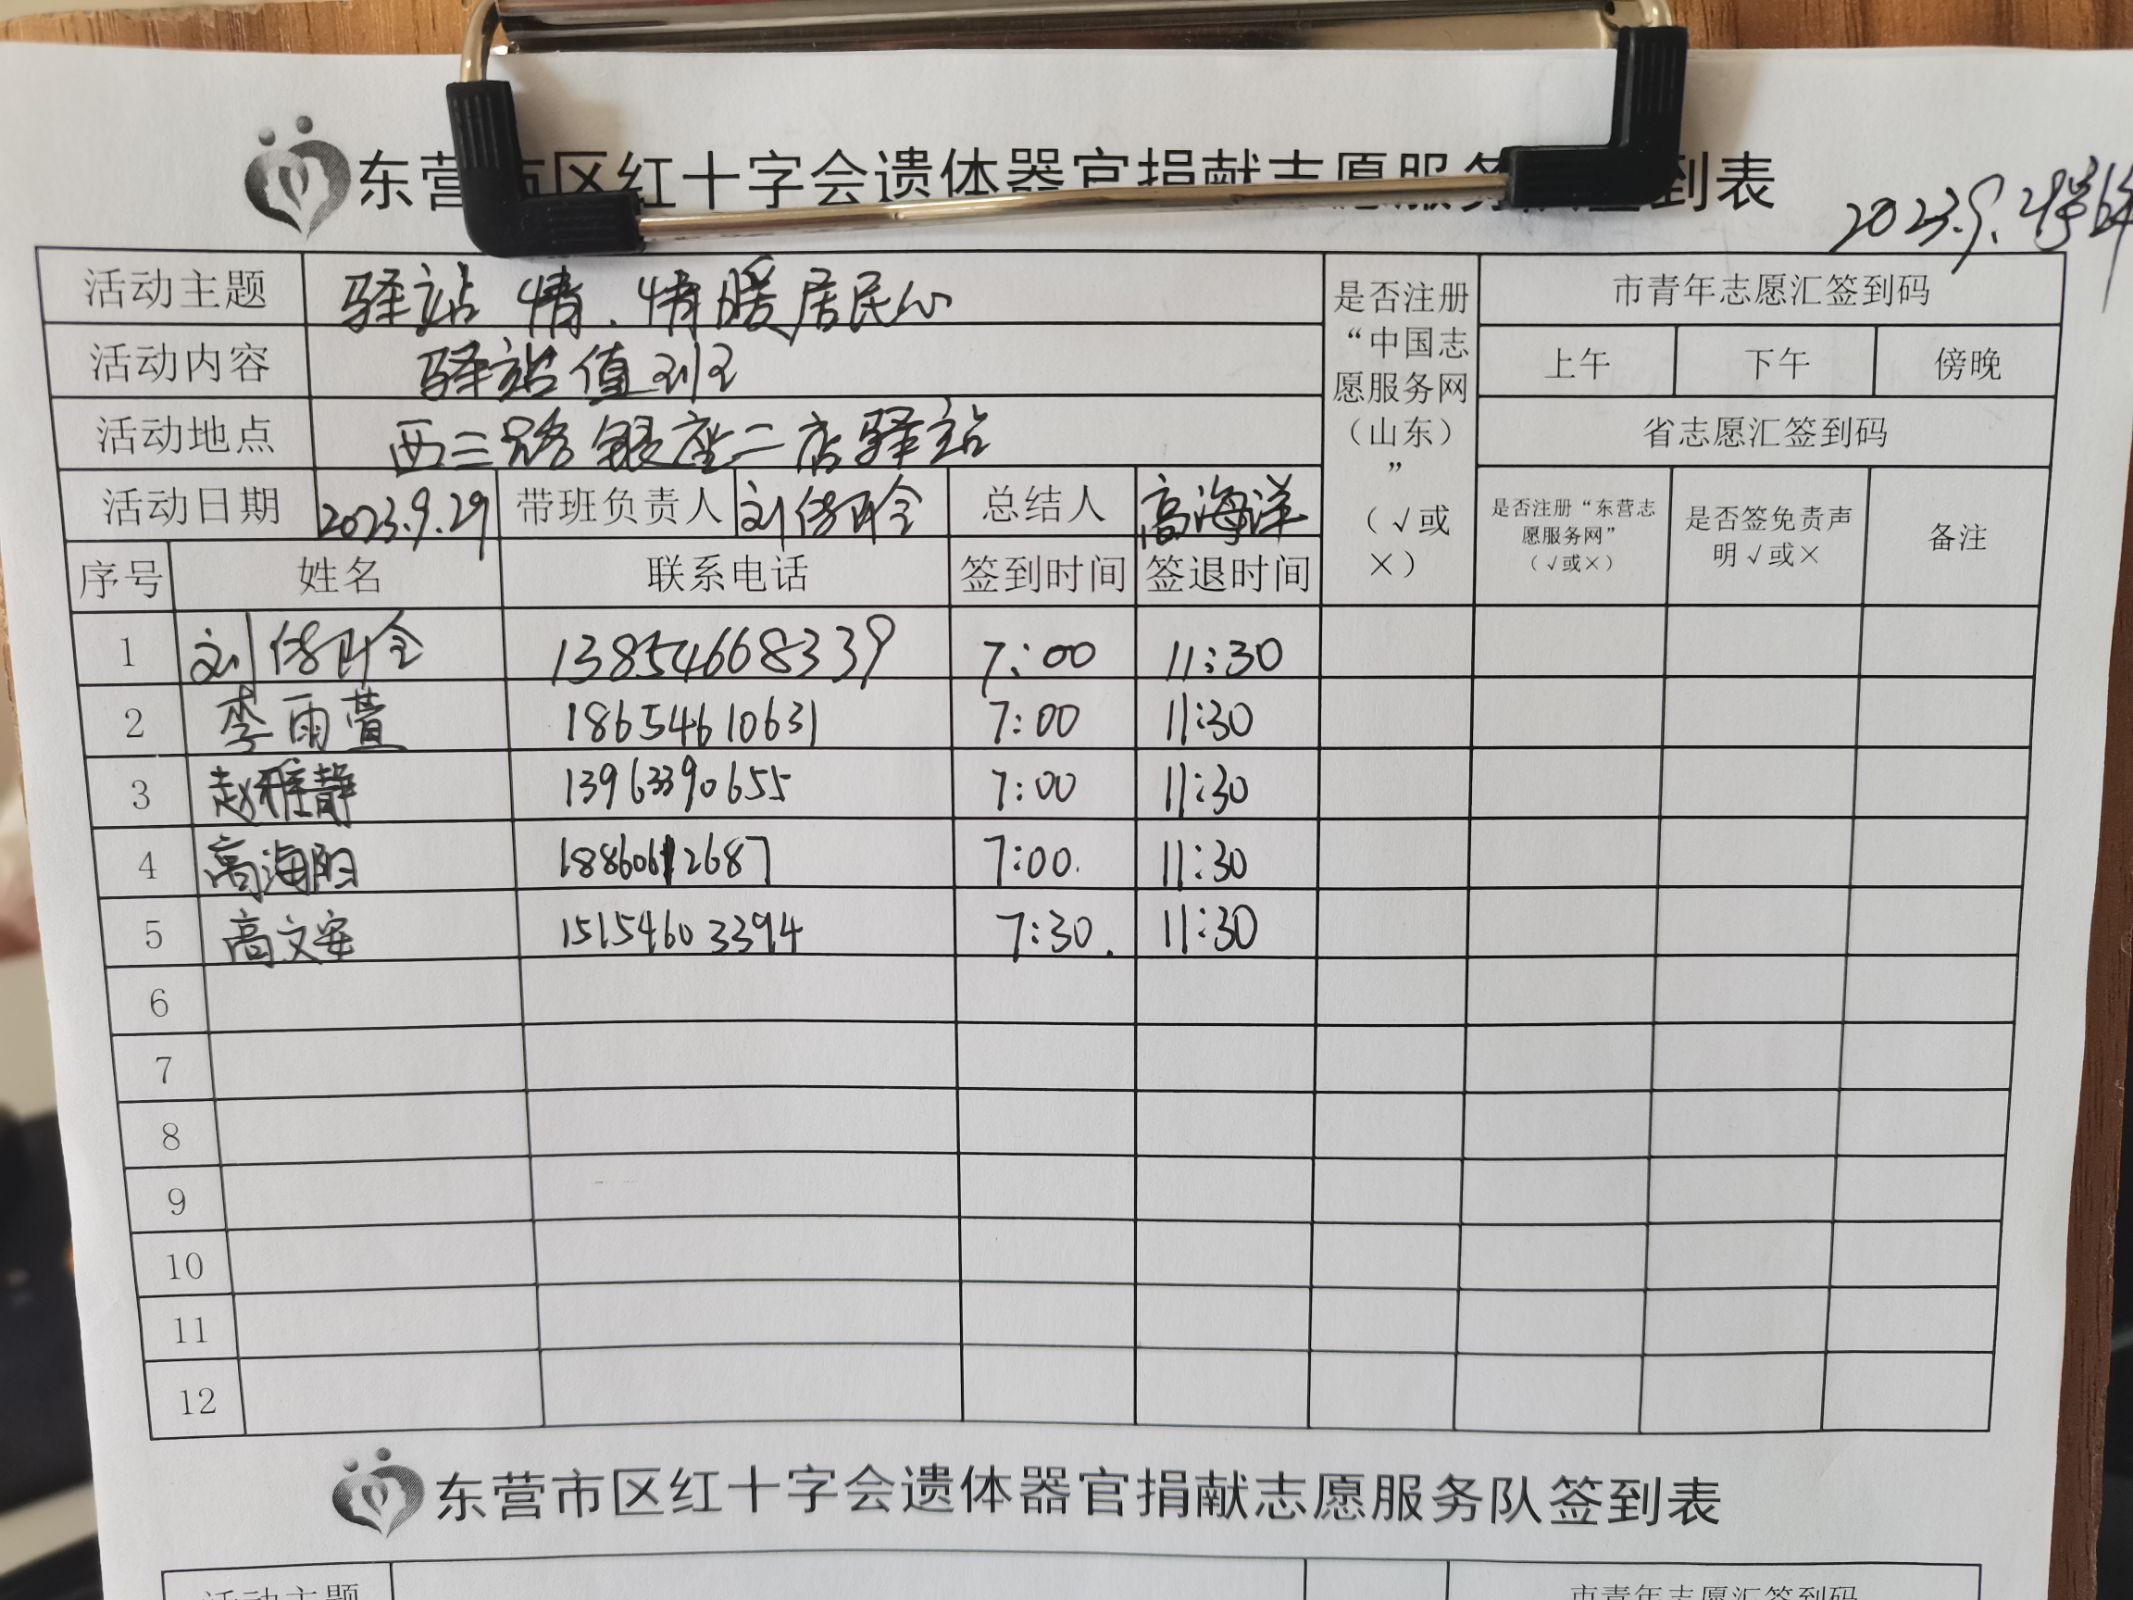 东营市区红十字会遗体器官捐献志愿服务队签到表
2023.9.
活动主题 驿站情.情暖居民心 是否注册“中国志愿服务网（山东）”（√或×） 市青年志愿汇签到码
活动内容 驿站值班 上午 下午 傍晚
活动地点 西三路银座二店驿站 省志愿汇签到码
活动日期 2023.9.29 带班负责人 刘 总结人 高海洋 是否注册“东营志愿服务网”（√或×） 是否签免责声明√或× 备注
序号 姓名 联系电话 签到时间 签退时间
1 刘 13854668339 7:00 11:30
2 李雨萱 18654610631 7:00 11:30
3 赵雅静 13963390655 7:00 11:30
4 高海阳 18860612687 7:00. 11:30
5 高文安 15154603394 7:30. 11:30
6
7
8
9
10
11
12
东营市区红十字会遗体器官捐献志愿服务队签到表
活动主题 市青年志愿汇签到码